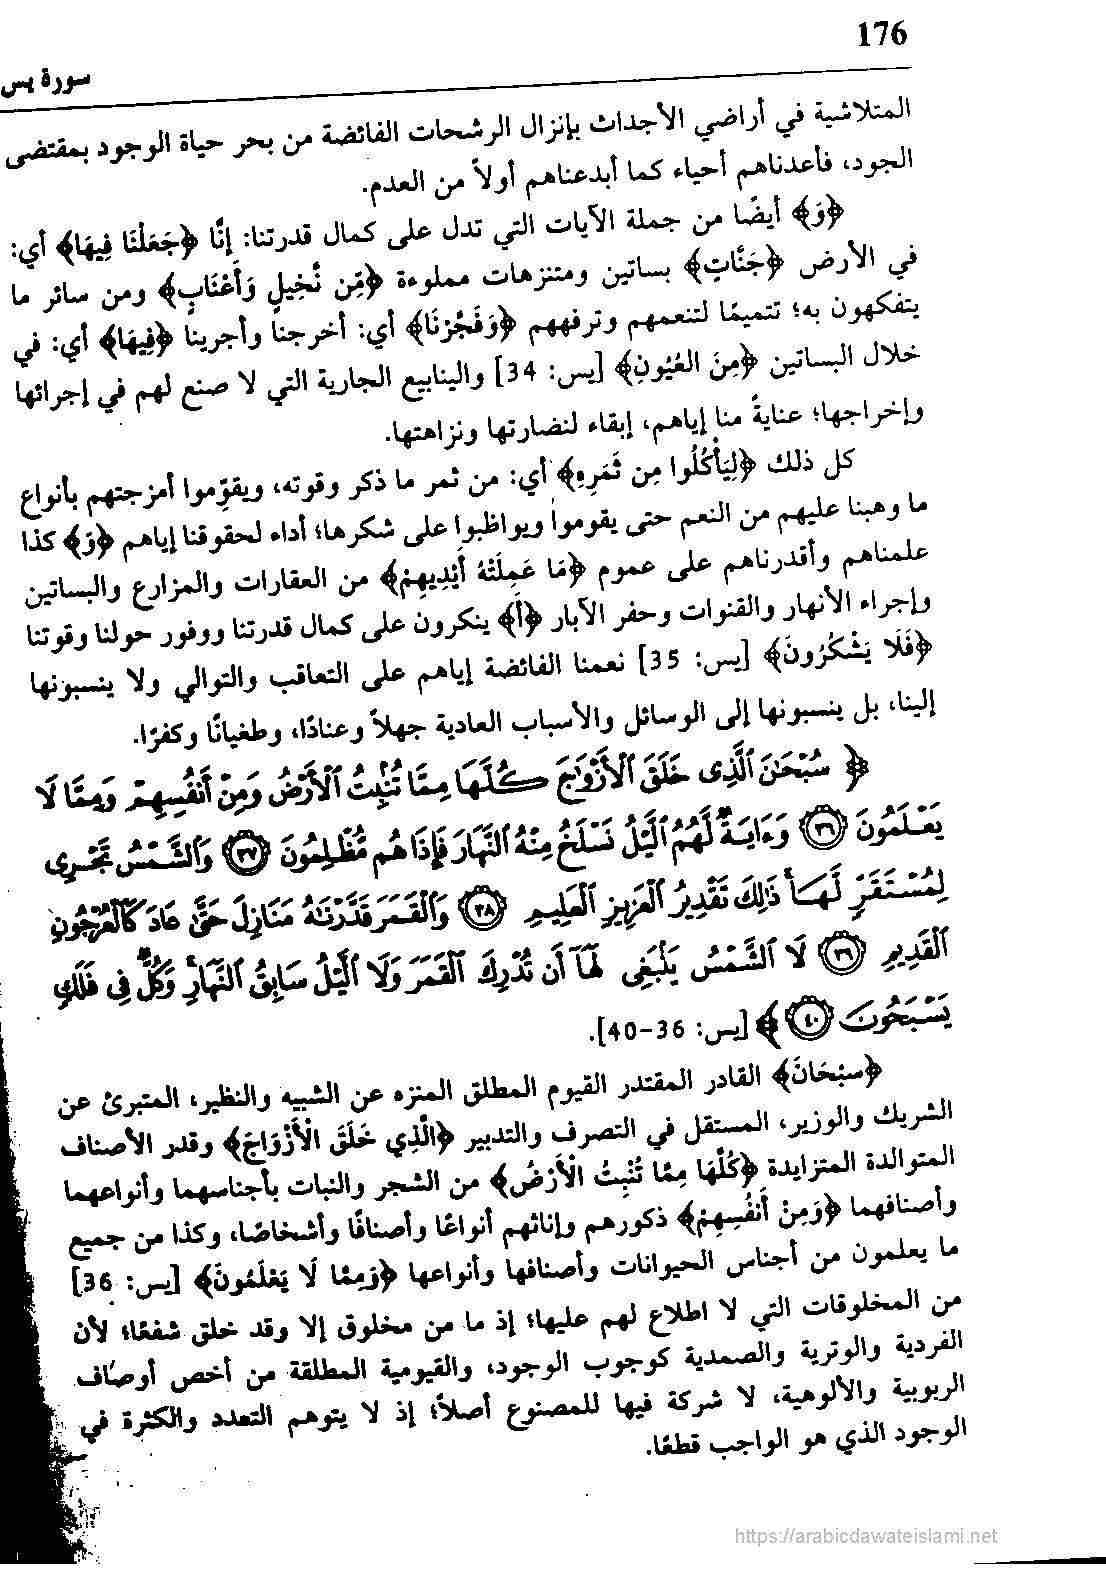 176
سورة يس
المتلاشية في أراضي الأجداث بإنزال الرشحات الفائضة من بحر حياة الوجود بمقتضى
الجود، فأعدناهم أحياء كما أبدعناهم أولاً من العدم.
﴿وَ﴾ أيضًا من جملة الآيات التي تدل على كمال قدرتنا: إنَّا ﴿جَعَلْنَا فِيهَا﴾ أي:
في الأرض ﴿جَنَّاتٍ﴾ بساتين ومتنزهات مملوءة ﴿مِّن نَّخِيلٍ وَأَعْنَابٍ﴾ ومن سائر ما
يتفكهون به؛ تتميمًا لتنعمهم وترفههم ﴿وَفَجَّرْنَا﴾ أي: أخرجنا وأجرينا ﴿فِيهَا﴾ أي: في
خلال البساتين ﴿مِنَ العُيُونِ﴾ [يس: 34] والينابيع الجارية التي لا صنع لهم في إجرائها
وإخراجها؛ عنايةً منا إياهم، إبقاء لنضارتها ونزاهتها.
كل ذلك ﴿لِيَأْكُلُوا مِن ثَمَرِهِ﴾ أي: من ثمر ما ذكر وقوته، ويقوِّموا أمزجتهم بأنواع
ما وهبنا عليهم من النعم حتى يقوموا ويواظبوا على شكرها؛ أداء لحقوقنا إياهم ﴿وَ﴾ كذا
علمناهم وأقدرناهم على عموم ﴿مَا عَمِلَتْهُ أَيْدِيهِمْ﴾ من العقارات والمزارع والبساتين
وإجراء الأنهار والقنوات وحفر الآبار ﴿أَ﴾ ينكرون على كمال قدرتنا ووفور حولنا وقوتنا
﴿فَلَا يَشْكُرُونَ﴾ [يس: 35] نعمنا الفائضة إياهم على التعاقب والتوالي ولا ينسبونها
إلينا، بل ينسبونها إلى الوسائل والأسباب العادية جهلاً وعنادًا، وطغيانًا وكفرًا.
﴿سُبْحَٰنَ ٱلَّذِى خَلَقَ ٱلْأَزْوَٰجَ كُلَّهَا مِمَّا تُنۢبِتُ ٱلْأَرْضُ وَمِنْ أَنفُسِهِمْ وَمِمَّا لَا
يَعْلَمُونَ ٣٦ وَءَايَةٌ لَّهُمُ ٱلَّيْلُ نَسْلَخُ مِنْهُ ٱلنَّهَارَ فَإِذَا هُم مُّظْلِمُونَ ٣٧ وَٱلشَّمْسُ تَجْرِى
لِمُسْتَقَرٍّ لَّهَا ذَٰلِكَ تَقْدِيرُ ٱلْعَزِيزِ ٱلْعَلِيمِ ٣٨ وَٱلْقَمَرَ قَدَّرْنَٰهُ مَنَازِلَ حَتَّىٰ عَادَ كَٱلْعُرْجُونِ
ٱلْقَدِيمِ ٣٩ لَا ٱلشَّمْسُ يَنۢبَغِى لَهَآ أَن تُدْرِكَ ٱلْقَمَرَ وَلَا ٱلَّيْلُ سَابِقُ ٱلنَّهَارِ وَكُلٌّ فِى فَلَكٍ
يَسْبَحُونَ ٤٠﴾ [يس: 36-40].
﴿سبْحَانَ﴾ القادر المقتدر القيوم المطلق المنزه عن الشبيه والنظير، المتبرئ عن
الشريك والوزير، المستقل في التصرف والتدبير ﴿الَّذِي خَلَقَ الْأَزْوَاجَ﴾ وقدر الأصناف
المتوالدة المتزايدة ﴿كُلَّهَا مِمَّا تُنْبِتُ الْأَرْضُ﴾ من الشجر والنبات بأجناسهما وأنواعهما
وأصنافهما ﴿وَمِنْ أَنفُسِهِمْ﴾ ذكورهم وإناثهم أنواعًا وأصنافًا وأشخاصًا، وكذا من جميع
ما يعلمون من أجناس الحيوانات وأصنافها وأنواعها ﴿وَمِمَّا لَا يَعْلَمُونَ﴾ [يس: 36]
من المخلوقات التي لا اطلاع لهم عليها؛ إذ ما من مخلوق إلا وقد خلق شفعًا؛ لأن
الفردية والوترية والصمدية كوجوب الوجود، والقيومية المطلقة من أخص أوصاف
الربوبية والألوهية، لا شركة فيها للمصنوع أصلاً؛ إذ لا يتوهم التعدد والكثرة في
الوجود الذي هو الواجب قطعًا.
https://arabicdawateislami.net